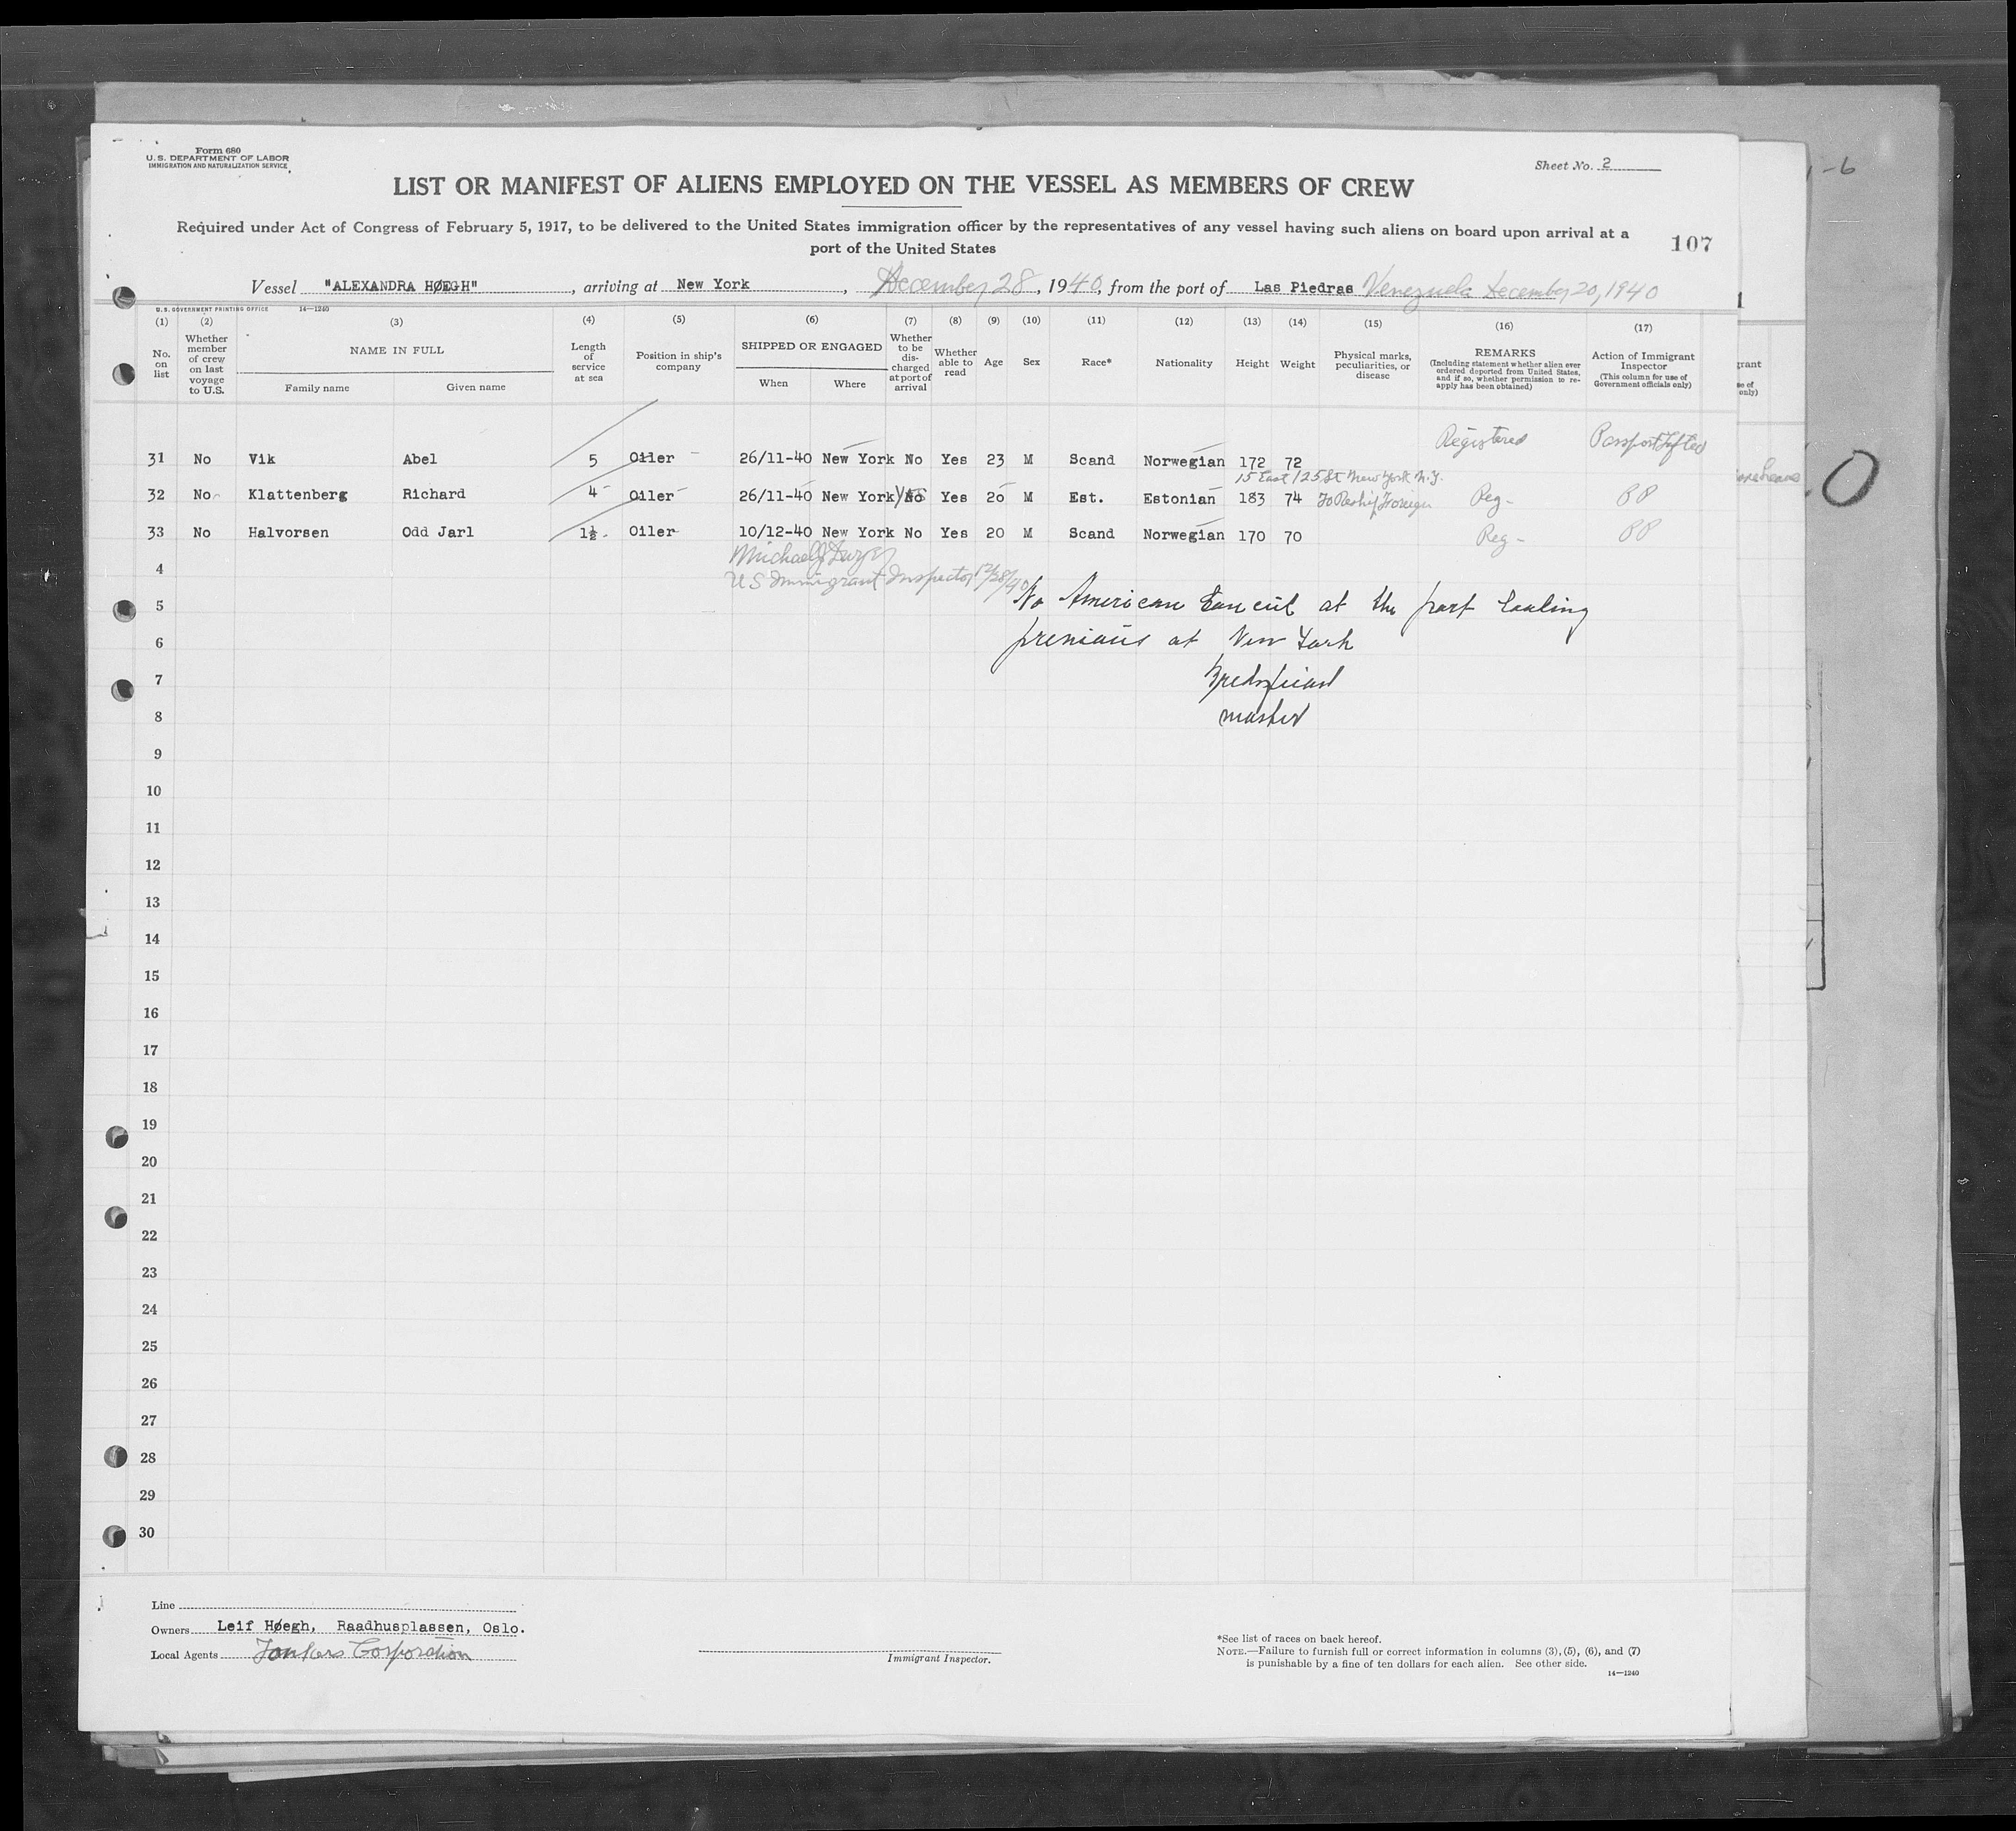 Form 680
U.S. DEPARTMENT OF LABOR
IMMIGRATION AND NATURALIZATION SERVICE
Sheet No. 2
LIST OR MANIFEST OF ALIENS EMPLOYED ON THE VESSEL AS MEMBERS OF CREW
Required under Act of Congress of February 5, 1917, to be delivered to the United States immigration officer by the representatives of any vessel having such aliens on board upon arrival at a
port of the United States
107
Vessel "ALEXANDRA HØEGH", arriving at New York, December 28, 1940, from the port of Las Piedras Venezuela December 20, 1940
U.S. GOVERNMENT PRINTING OFFICE 14—1240
(1) (2) (3) (4) (5) (6) (7) (8) (9) (10) (11) (12) (13) (14) (15) (16) (17)
No. on list
Whether member of crew on last voyage to U.S.
NAME IN FULL
Family name Given name
Length of service at sea
Position in ship's company
SHIPPED OR ENGAGED
When Where
Whether to be discharged at port of arrival
Whether able to read
Age
Sex
Race*
Nationality
Height
Weight
Physical marks, peculiarities, or disease
REMARKS
(Including statement whether alien ever ordered deported from United States, and if so, whether permission to reapply has been obtained)
Action of Immigrant Inspector
(This column for use of Government officials only)
Registered Passport Lifted
31 No Vik Abel 5 Oiler 26/11-40 New York No Yes 23 M Scand Norwegian 172 72
15 East 125 St New York N.Y.
32 No Klattenberg Richard 4 Oiler 26/11-40 New York No Yes Yes 20 M Est. Estonian 183 74 To Reship Foreign Reg- PP
33 No Halvorsen Odd Jarl 1½ Oiler 10/12-40 New York No Yes 20 M Scand Norwegian 170 70 Reg- PP
Michael J
US Immigrant Inspector 12/28/40
4
No American Consul at the port
5
at New York
6
7
master
8
9
10
11
12
13
14
15
16
17
18
19
20
21
22
23
24
25
26
27
28
29
30
Line
Owners Leif Høegh, Raadhusplassen, Oslo.
Local Agents Corporation
Immigrant Inspector.
*See list of races on back hereof.
NOTE.—Failure to furnish full or correct information in columns (3), (5), (6), and (7)
is punishable by a fine of ten dollars for each alien. See other side.
14—1240